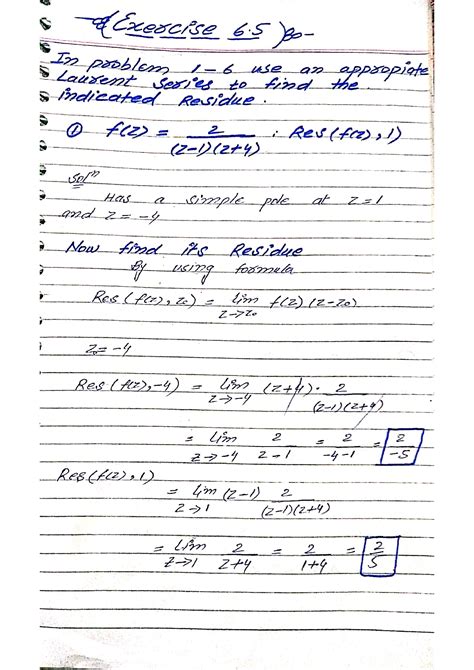 Exercise 6.5
In problem 1-6 use an appropiate
Laurent Series to find the
indicated Residue.
① f(z) = 2/((z-1)(z+4)) : Res(f(z), 1)
Solⁿ
Has a simple pole at z=1
and z = -4
Now find its Residue
By using formula
Res(f(z), z₀) = lim z→z₀ f(z)(z-z₀)
z₀ = -4
Res(f(z), -4) = lim z→-4 (z+4) · 2/((z-1)(z+4))
= lim z→-4 2/(z-1) = 2/(-4-1) = 2/-5
Res(f(z), 1)
= lim z→1 (z-1) 2/((z-1)(z+4))
= lim z→1 2/(z+4) = 2/(1+4) = 2/5